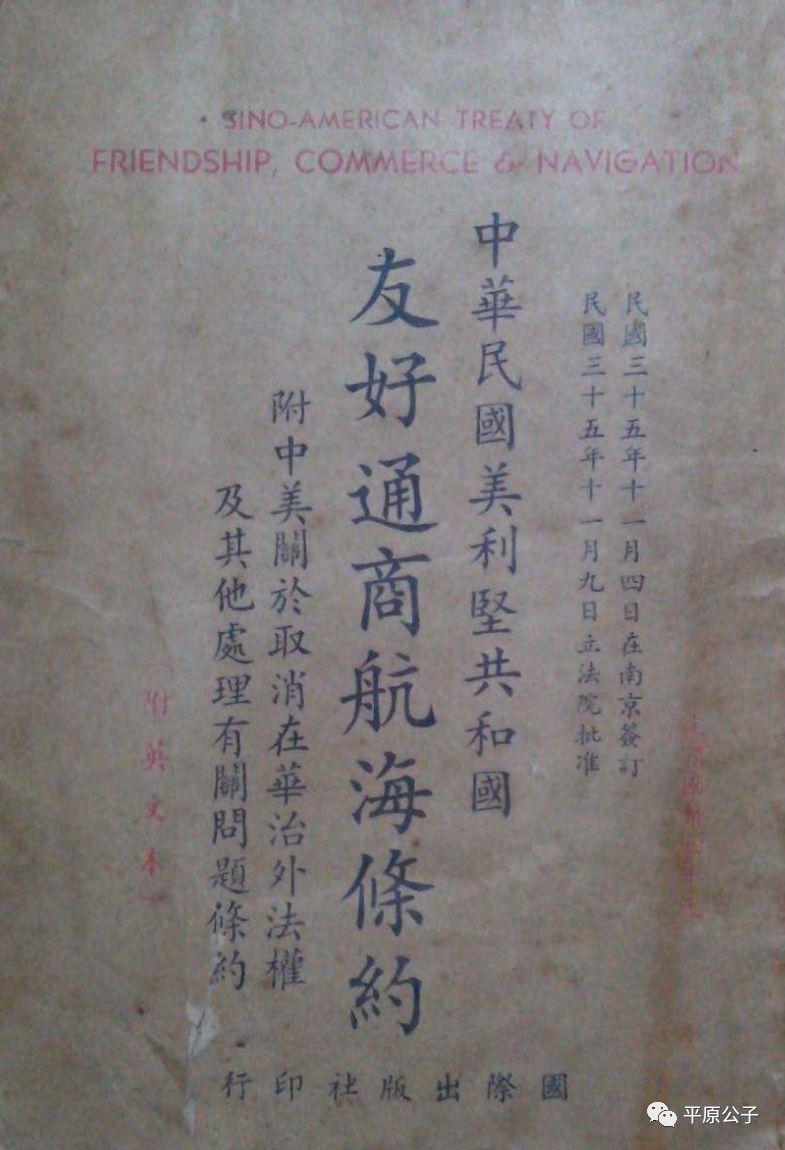 SINO-AMERICAN TREATY OF
FRIENDSHIP, COMMERCE & NAVIGATION
民國三十五年十一月四日在南京簽訂
民國三十五年十一月九日立法院批准
中華民國美利堅共和國
友好通商航海條約
附中美關於取消在華治外法權
及其他處理有關問題條約
附英文本
國際出版社印行
平原公子